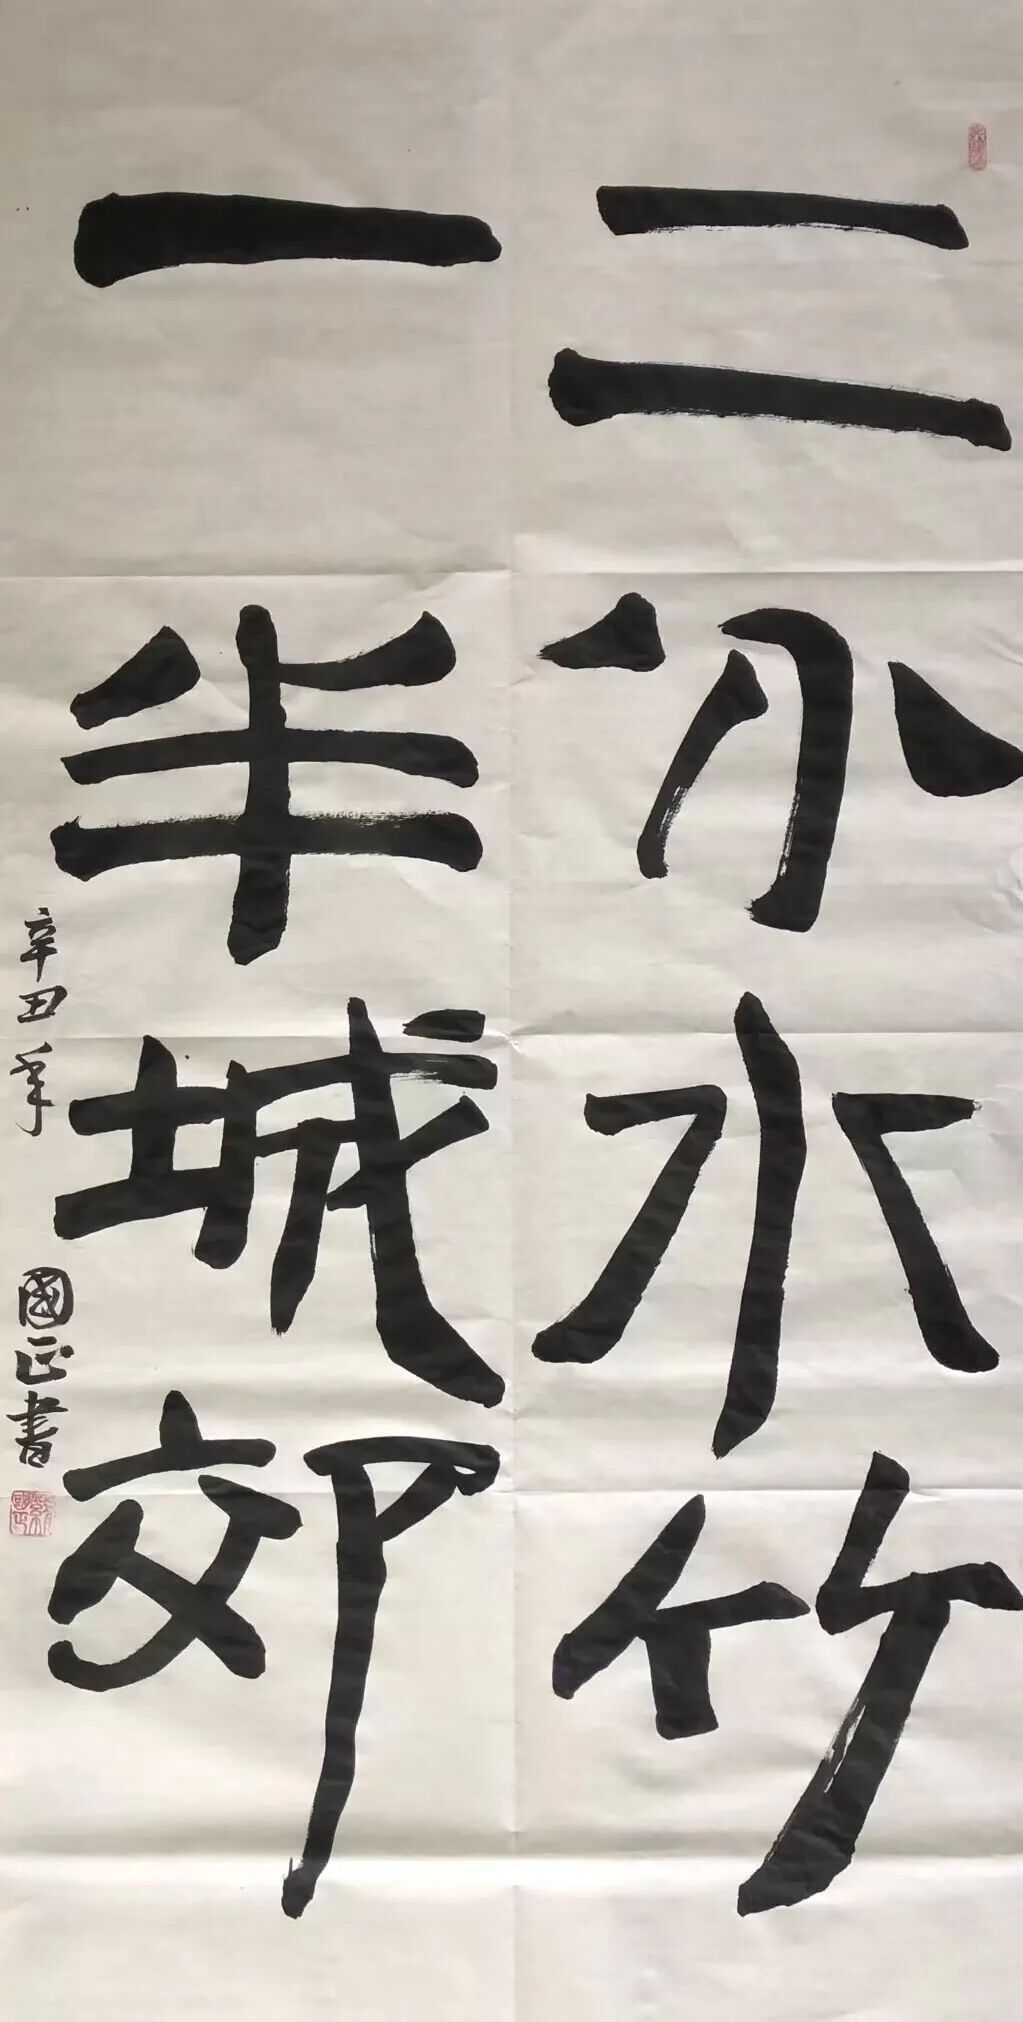 二分水竹
一半城郊
辛丑年 國正書